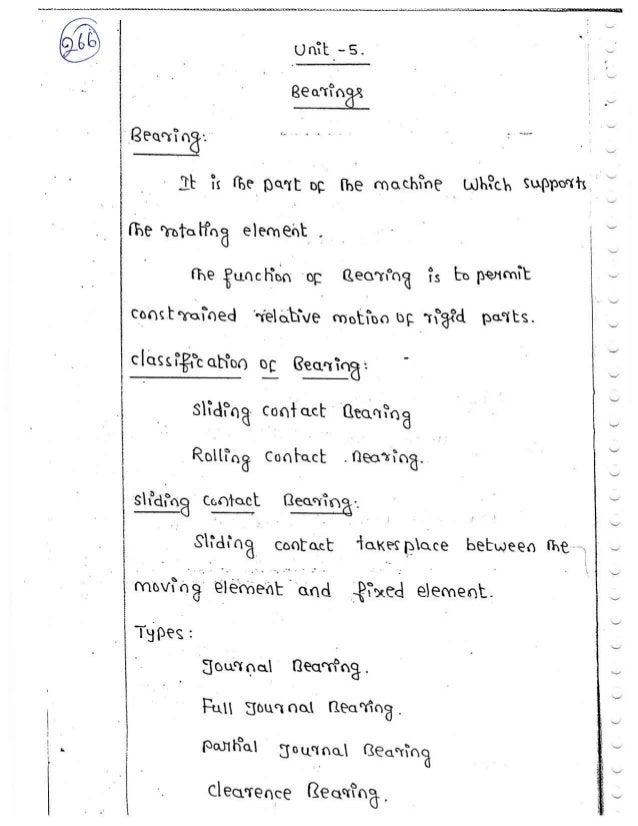 266
Unit - 5.
Bearings
Bearing:
It is the part of the machine which supports
the rotating element.
The function of Bearing is to permit
constrained relative motion of rigid parts.
classification of Bearing:
sliding contact Bearing
Rolling contact Bearing.
sliding contact Bearing:
Sliding contact takes place between the
moving element and fixed element.
Types:
Journal Bearing.
Full Journal Bearing.
partial Journal Bearing
clearence Bearing.